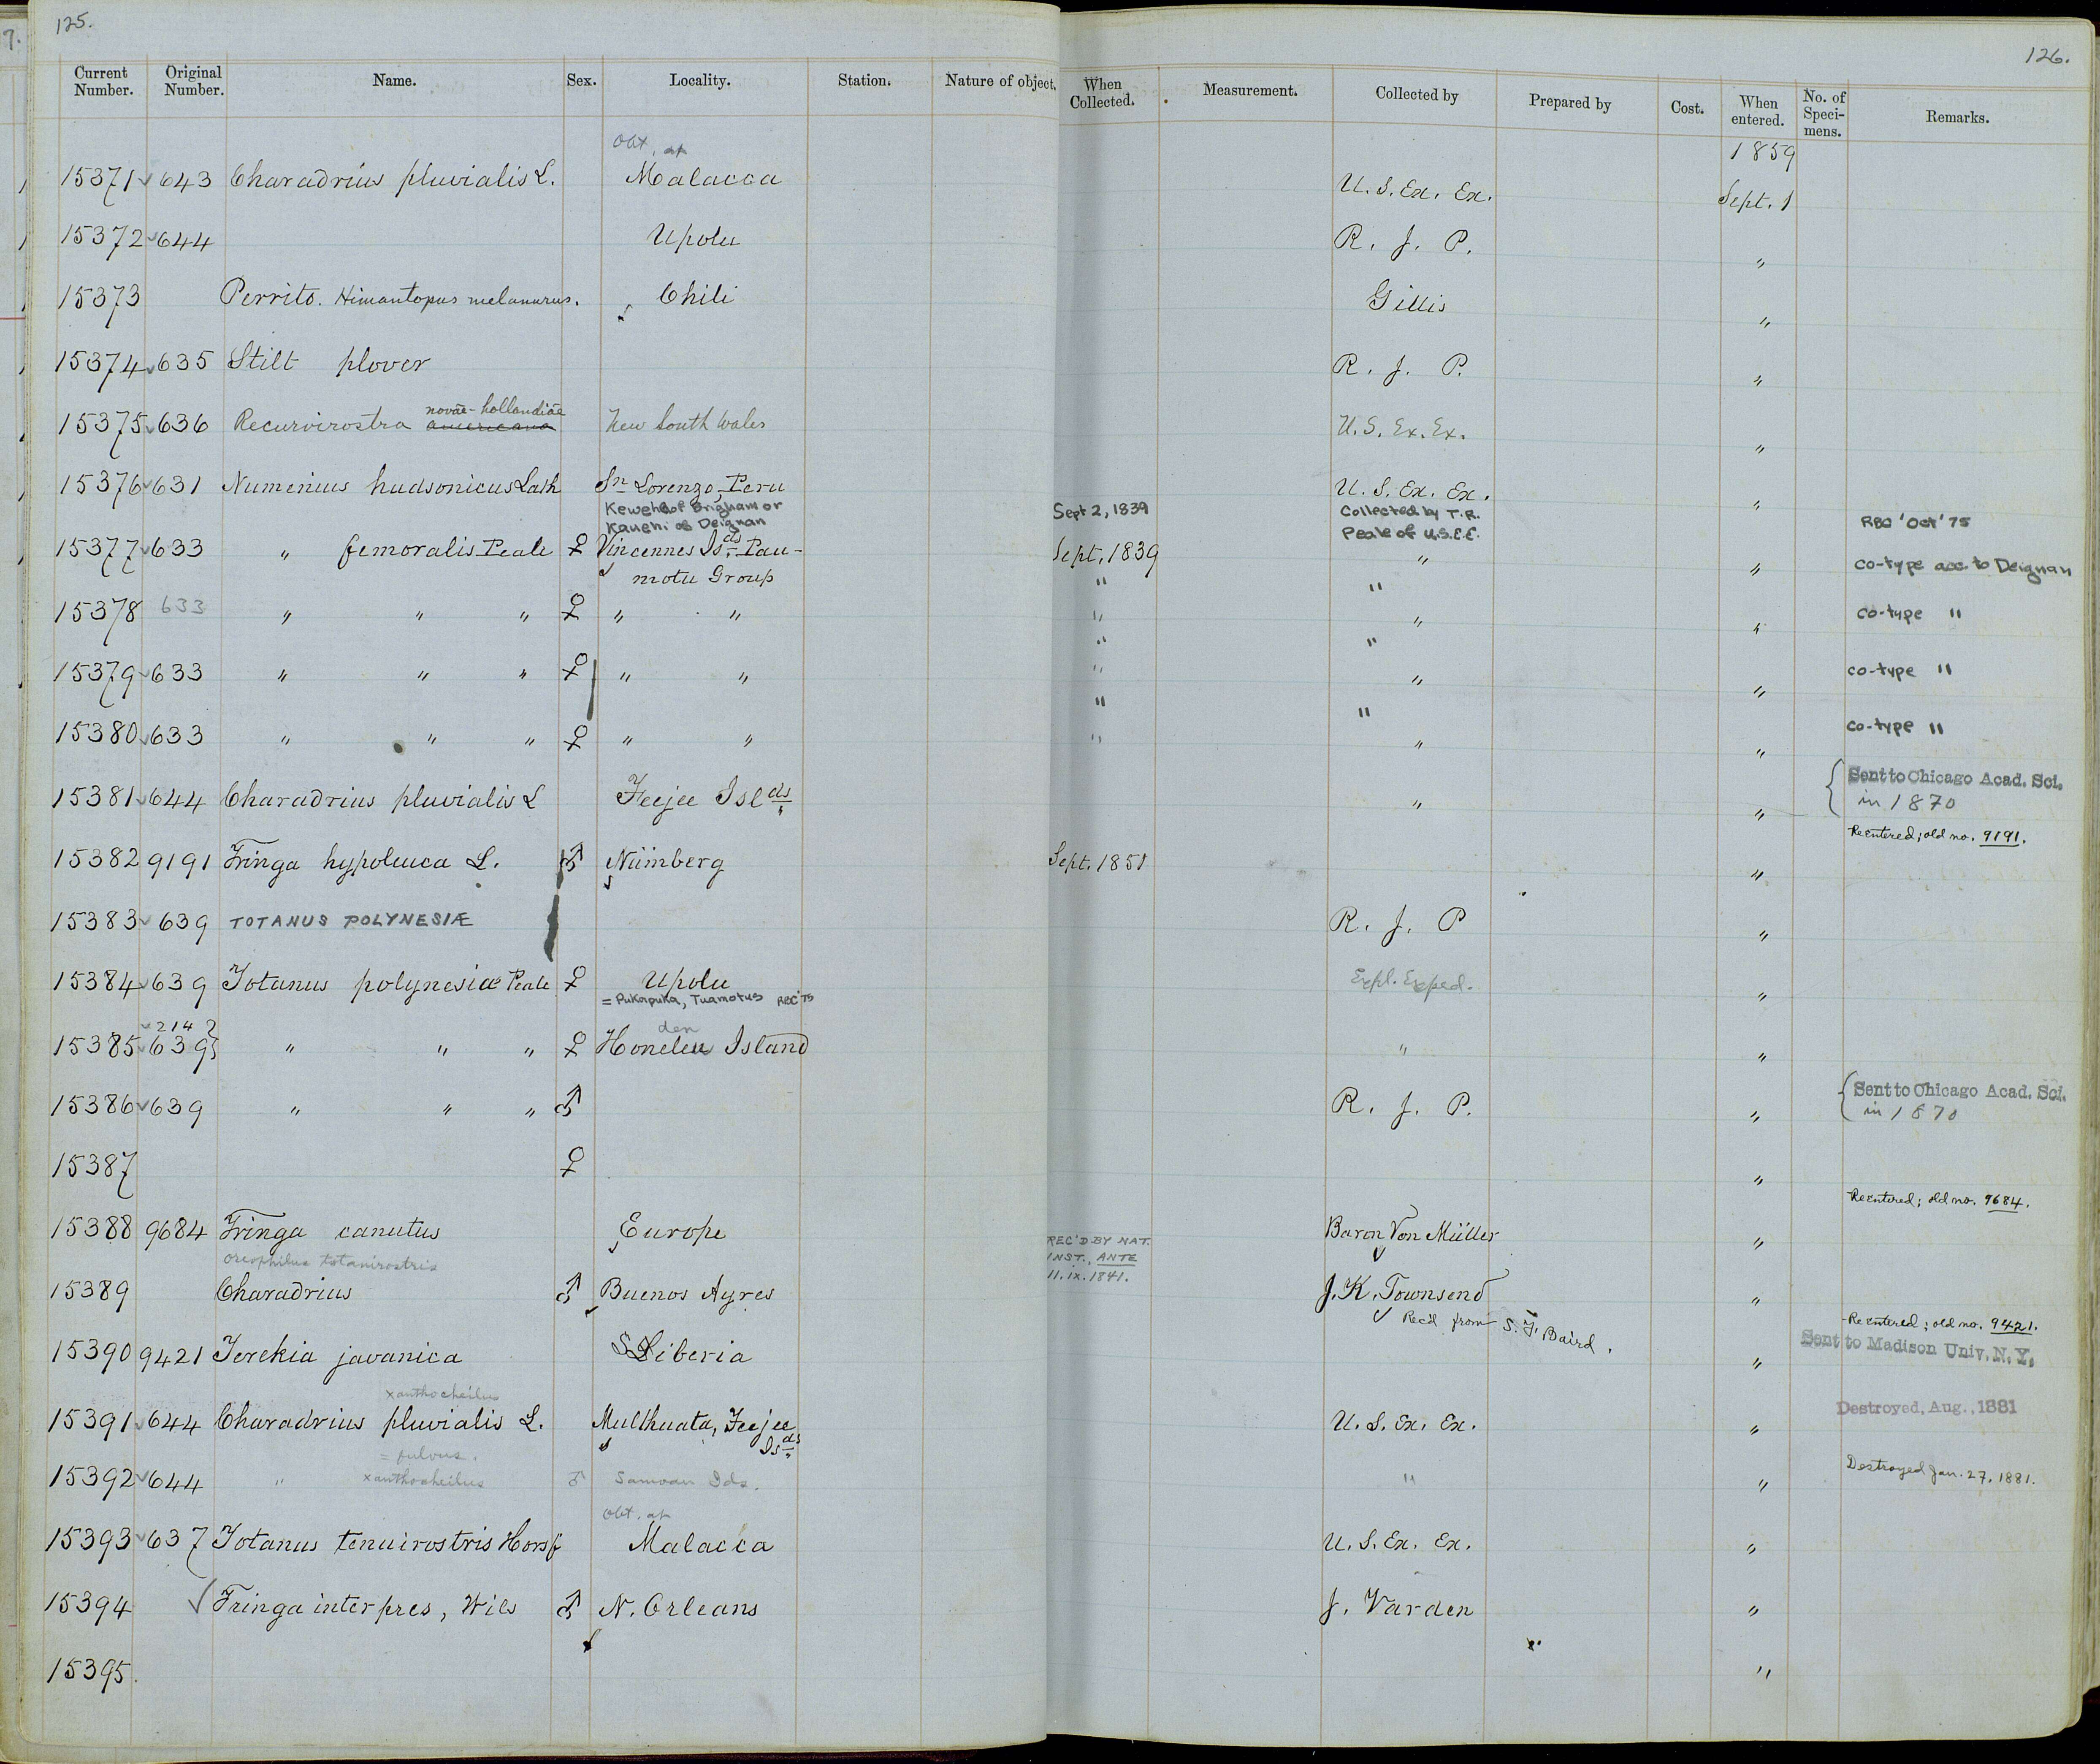 125.
126.
Current Number. Original Number. Name. Sex. Locality. Station. Nature of object. When Collected. Measurement. Collected by Prepared by Cost. When entered. No. of Speci-mens. Remarks.
Obt. at 1859
15371 643 Charadrius pluvialis L. Malacca U. S. Ex. Ex. Sept. 1
15372 644 Upolu R. J. P. "
15373 Perrito. Himantopus melanurus. Chili Gillis "
15374 635 Stilt plover R. J. P. "
novae-hollandiae
15375 636 Recurvirostra americana New South Wales U.S. Ex. Ex. "
15376 631 Numenius hudsonicus Lath Sn Lorenzo, Peru U. S. Ex. Ex. "
of Brigham or Sept 2, 1839 Collected by T.R. RBC 'Oct' 75
Kauehi of Deignan Peale of U.S.E.E.
15377 633 " femoralis Peale ♀ Vincennes Is.ds Pau- Sept. 1839 " " co-type acc. to Deignan
motu Group " "
15378 633 " " " ♀ " " " " " co-type "
" "
15379 633 " " " ♀ " " " " " co-type "
" "
15380 633 " " " ♀ " " " " " co-type "
15381 644 Charadrius pluvialis L Feejee Islds " " { Sent to Chicago Acad. Sci.
in 1870
Reentered; old no. 9191.
15382 9191 Tringa hypoleuca L. ♂ Nürnberg Sept. 1851 "
15383 639 TOTANUS POLYNESIÆ R. J. P "
15384 639 Totanus polynesiae Peale ♀ Upolu Expl. Exped. "
= Pukapuka, Tuamotus RBC '75
214 den
15385 639 } " " " ♀ Honelen Island " "
15386 639 " " " ♂ R. J. P. " { Sent to Chicago Acad. Sci.
in 1870
15387 ♀ "
Reentered; old no. 9684.
15388 9684 Tringa canutus Europe Baron Von Müller "
Oreophilus totanirostris REC'D BY NAT. INST., ANTE 11.ix.1841.
15389 Charadrius ♂ Buenos Ayres J. K. Townsend "
Rec'd from S. F. Baird. Reentered; old no. 9421.
15390 9421 Terekia javanica Siberia " Sent to Madison Univ. N. Y.
xanthocheilus
15391 644 Charadrius pluvialis L. Multhuata, Feejee Isds U. S. Ex. Ex. " Destroyed, Aug., 1881
= fulvus.
15392 644 " xanthocheilus ♂ Samoan Ids. " " Destroyed Jan. 27, 1881.
Obt. at
15393 637 Totanus tenuirostris Horsf Malacca U. S. Ex. Ex. "
15394 Tringa interpres, Wils ♂ N. Orleans J. Varden "
15395. "